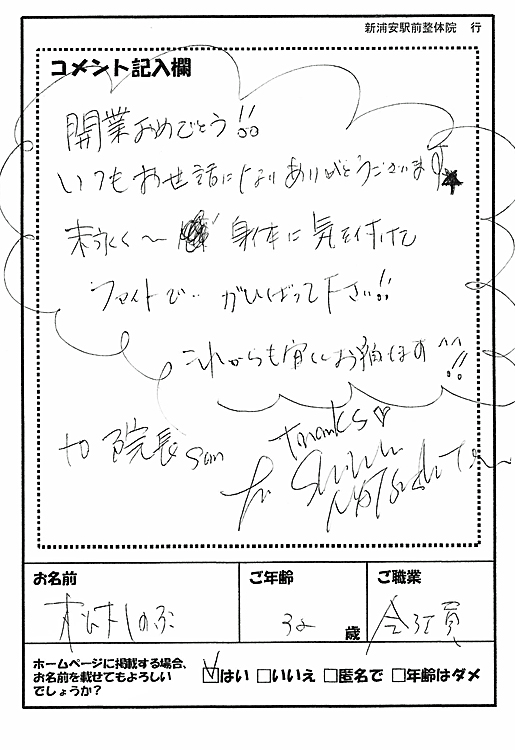 新浦安駅前整体院 行
コメント記入欄
開業おめでとう!!
いつもお世話になりありがとうございます★
末永く〜 身体に気を付けて
ファイトで‥がんばって下さい!!
これからも宜しくお願います^^!!
to 院長san
Thanks♡
お名前
ご年齢
ご職業
歳
会社員
ホームページに掲載する場合、
お名前を載せてもよろしい
でしょうか?
☑はい □いいえ □匿名で □年齢はダメ